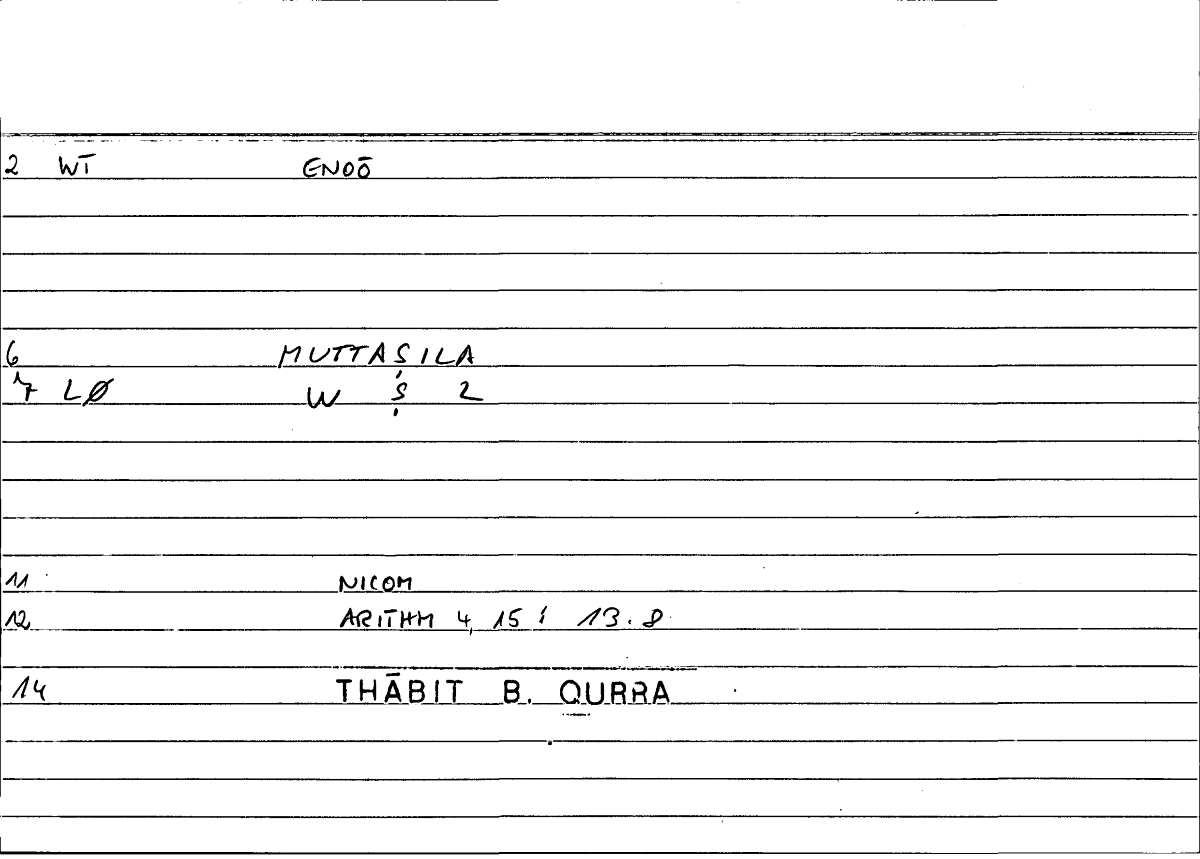 2 WT̄ ENOŌ
6 MUTTAṢILA
7 LØ W Ṣ 2
11 NICOM
12 ARITHM 4, 15; 13.8
14 THĀBIT B. QURRA